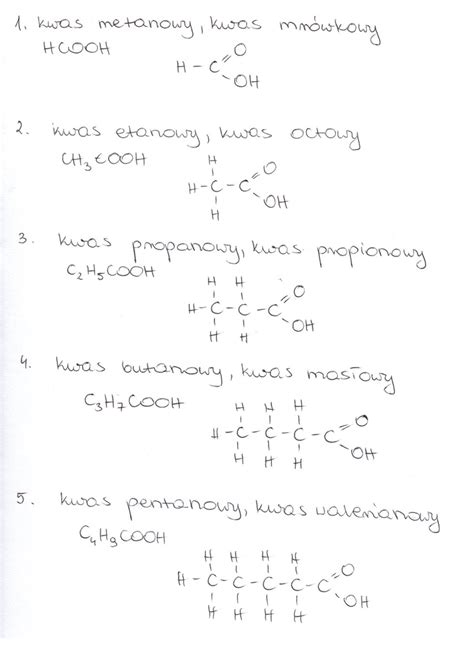 1. kwas metanowy, kwas mrówkowy
HCOOH
H - C = O
OH
2. kwas etanowy, kwas octowy
CH3COOH
H
H - C - C = O
OH
H
3. kwas propanowy, kwas propionowy
C2H5COOH
H H
H - C - C - C = O
OH
H H
4. kwas butanowy, kwas masłowy
C3H7COOH
H H H
H - C - C - C - C = O
OH
H H H
5. kwas pentanowy, kwas walerianowy
C4H9COOH
H H H H
H - C - C - C - C - C = O
OH
H H H H